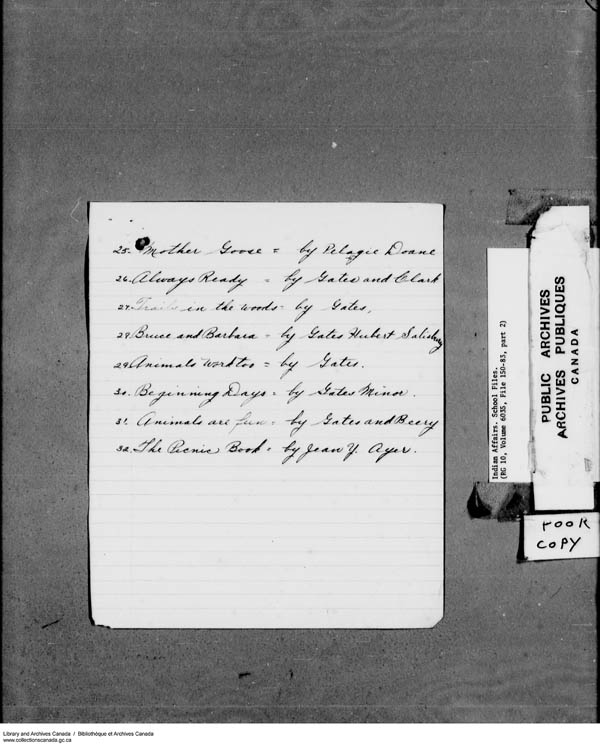 25. Mother Goose = by Pelagie Doane
26. Always Ready = by Gates and Clark
27. Trails in the woods = by Gates,
28. Bruce and Barbara = by Gates Hubert Salisbury
29. Animals Word too = by Gates.
30. Beginning Days = by Gates Minor.
31. Animals are fun = by Gates and Beery
32. The Picnic Book = by Jean Y. Ayer.
Indian Affairs. School Files.
(RG 10, Volume 6035, File 150-83, part 2)
PUBLIC ARCHIVES
ARCHIVES PUBLIQUES
CANADA
POOR
COPY
Library and Archives Canada / Bibliothèque et Archives Canada
www.collectionscanada.gc.ca